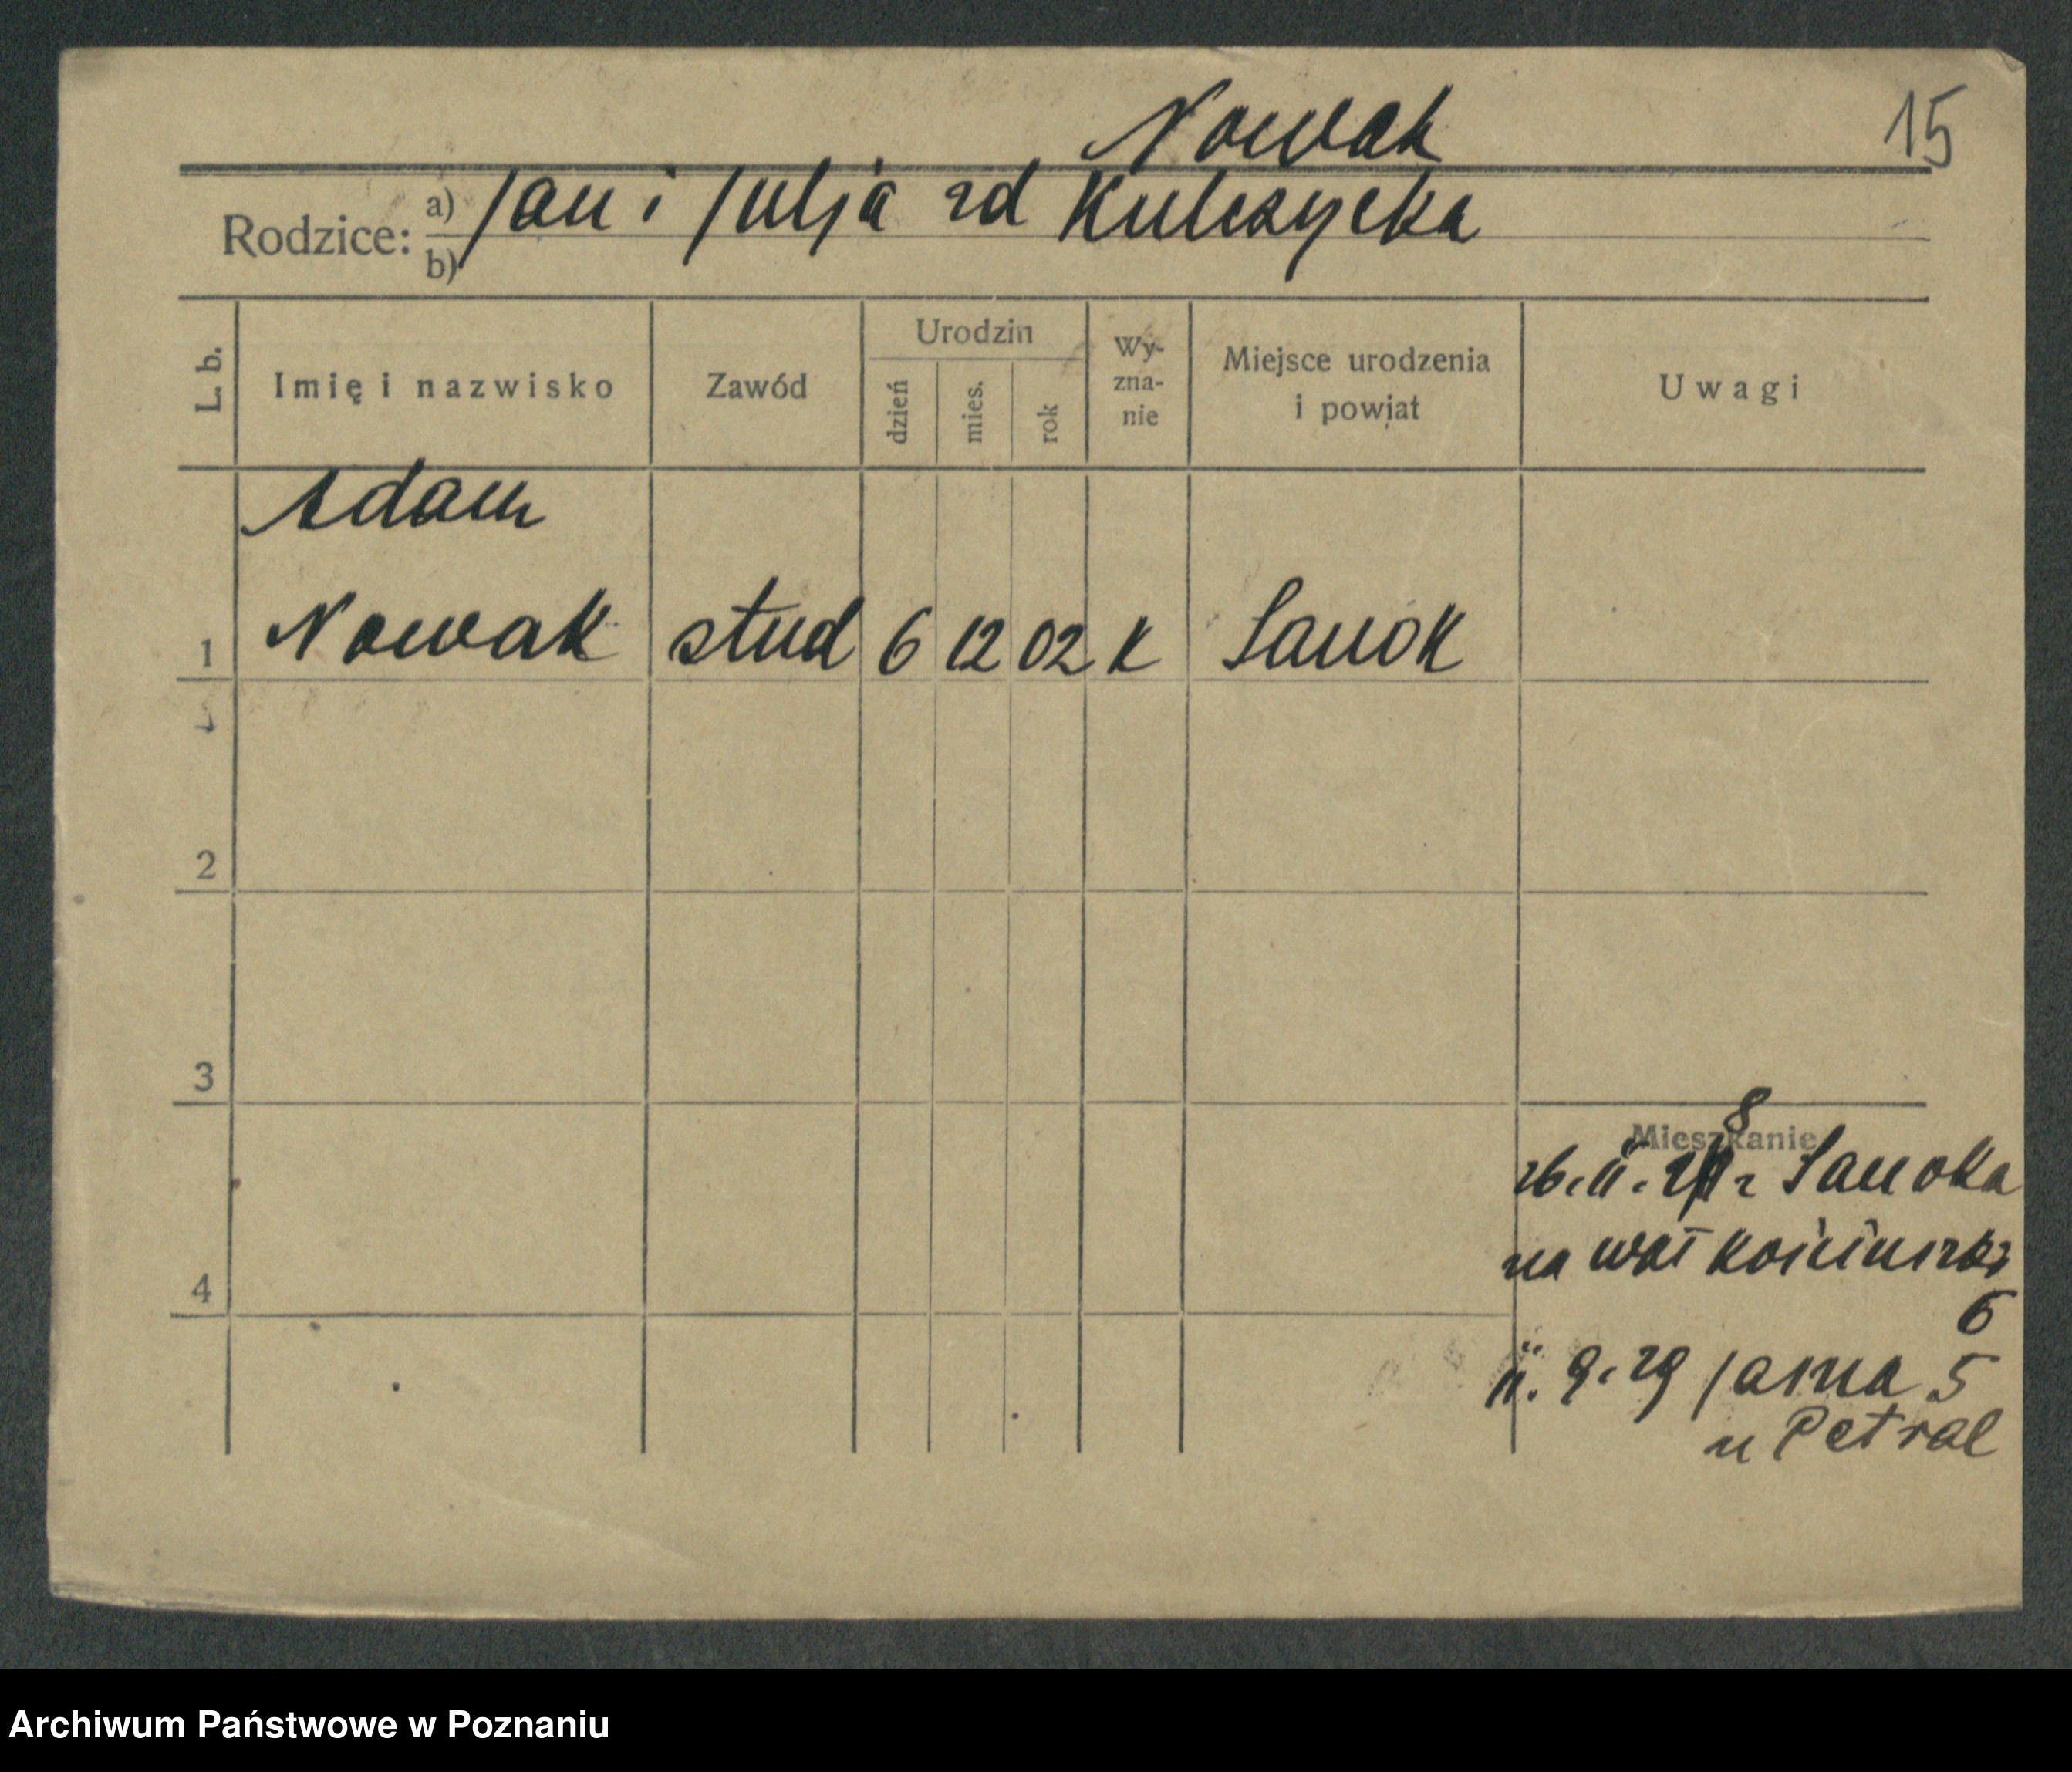 Nowak
15
Rodzice: a) Jan i Julja zd Kulczycka
b)
L. b.
Imię i nazwisko
Zawód
Urodzin
dzień
mies.
rok
Wy-
zna-
nie
Miejsce urodzenia
i powiat
Uwagi
Adam
1 Nowak stud 6 12 02 K Sanok
2
3
Mieszkanie
8
26.11. z Sanoka
na wał Kościuszki
4
6
11.9.29 Jasna 5
u Petral
Archiwum Państwowe w Poznaniu